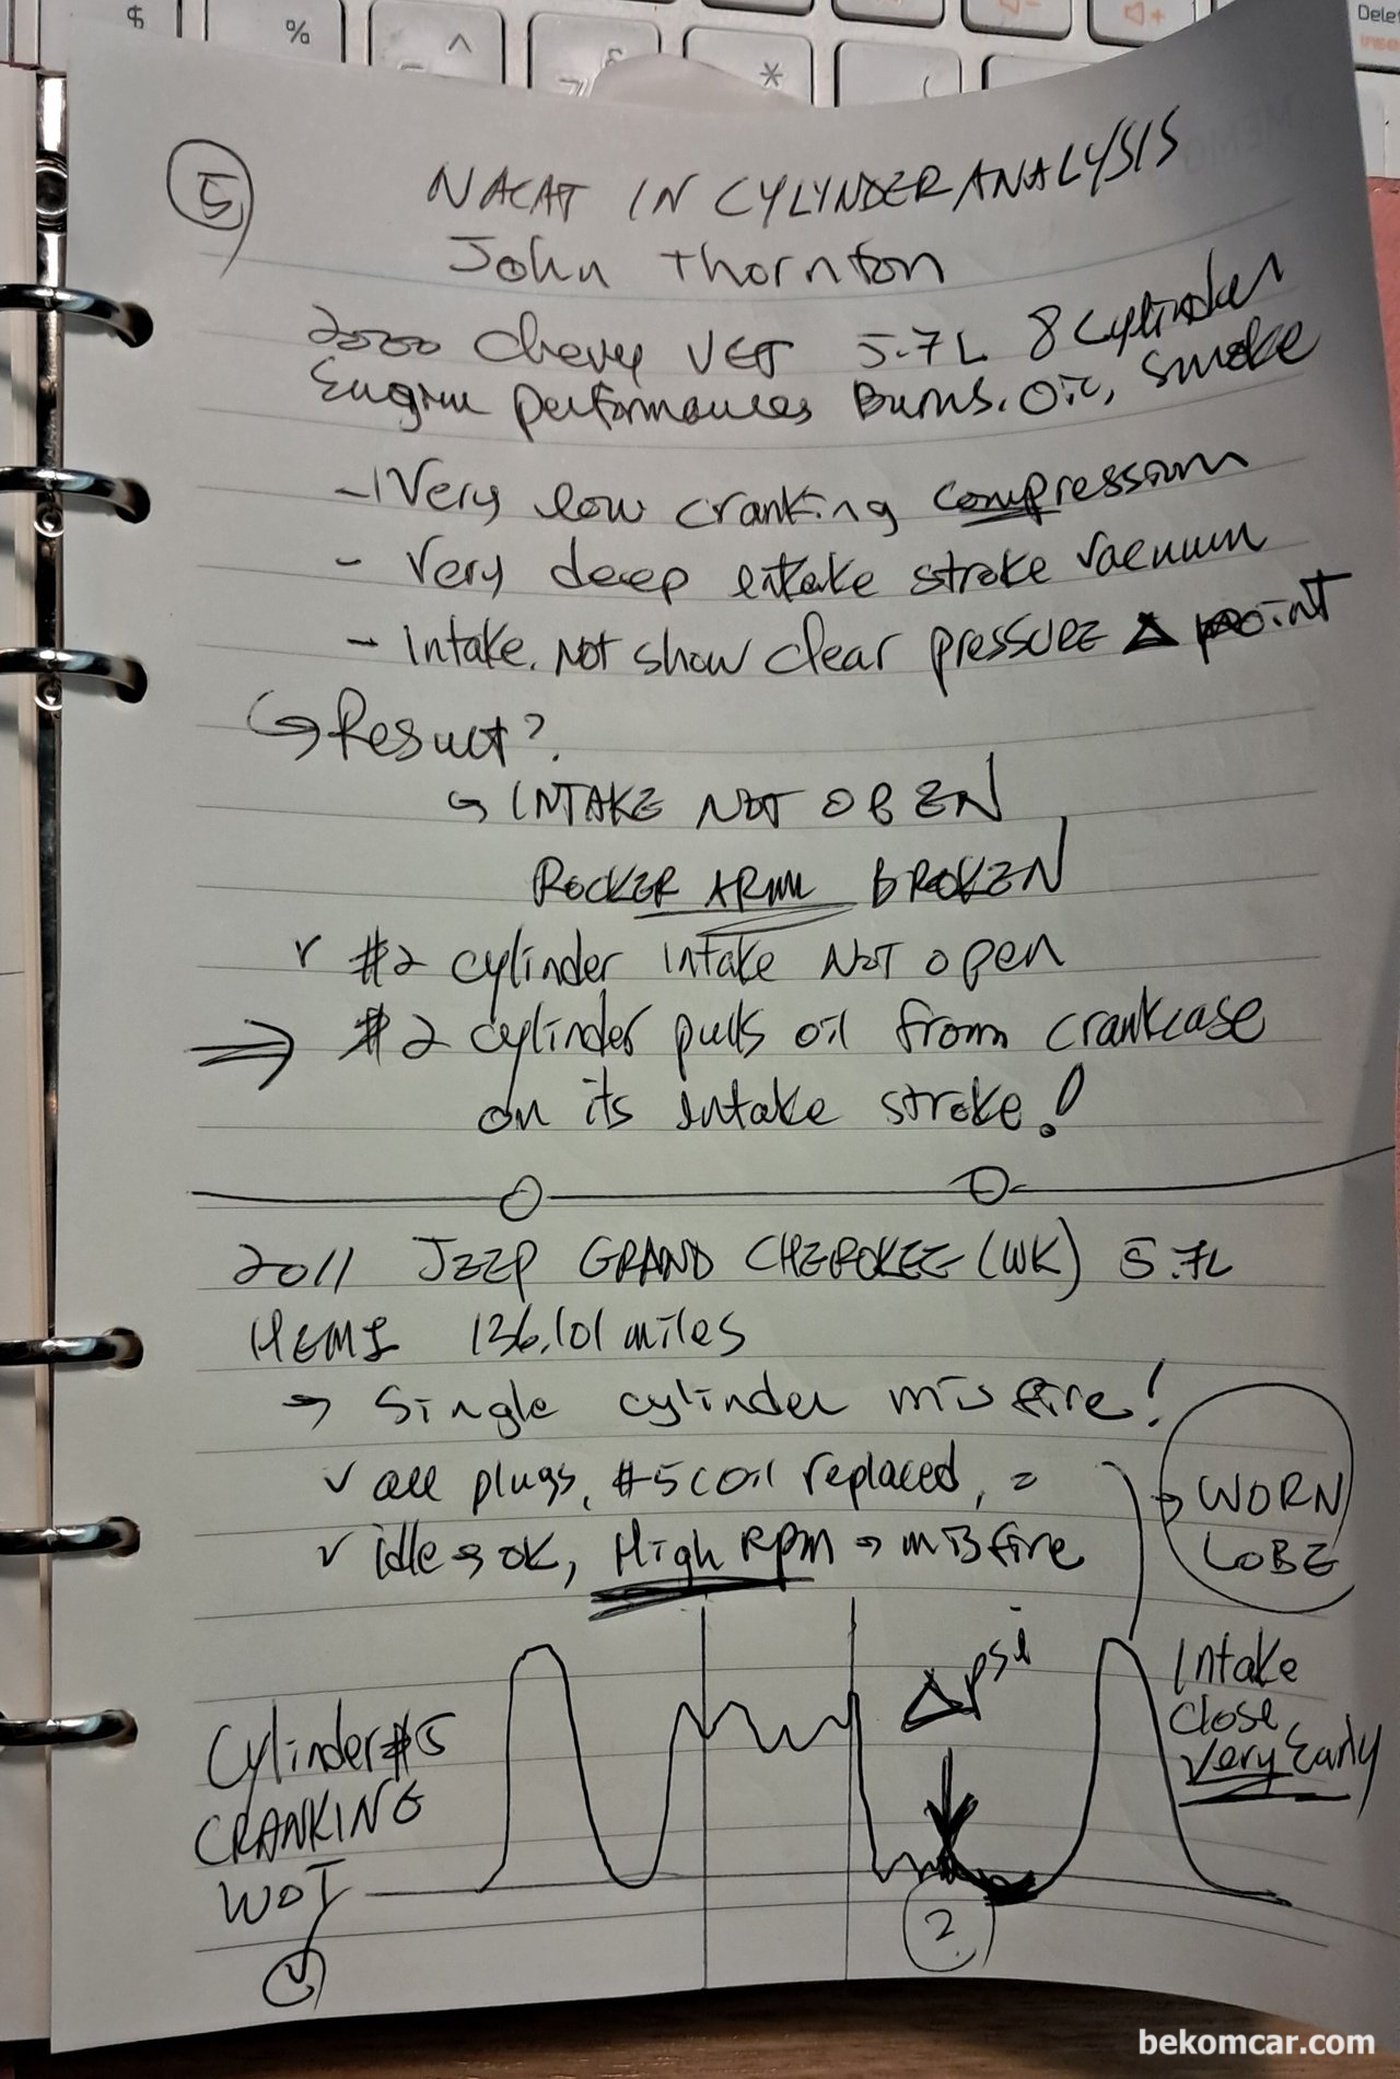 $ % ^ *
Delete
Inse
5
NACAT IN CYLYNDER ANALYSIS
John Thornton
2000 Chevy VET 5.7L 8 Cylinder
Engine performances Burns. Oil, Smoke
- Very low cranking compression
- Very deep intake stroke vacuum
- Intake. Not show clear pressure Δ point
↳ Result?
↳ INTAKE NOT OPEN
ROCKER ARM BROKEN
v #2 cylinder intake NOT open
⇒ #2 cylinder pulls oil from crankcase
on its intake stroke!
2011 JEEP GRAND CHEROKEE (WK) 5.7L
HEMI 136.101 miles
→ Single cylinder misfire!
v all plugs, #5 coil replaced, =
v idle → OK, High RPM → misfire
→ WORN
LOBE
Δpsi
Intake
close
very Early
Cylinder #5
CRANKING
WOT
2
bekomcar.com